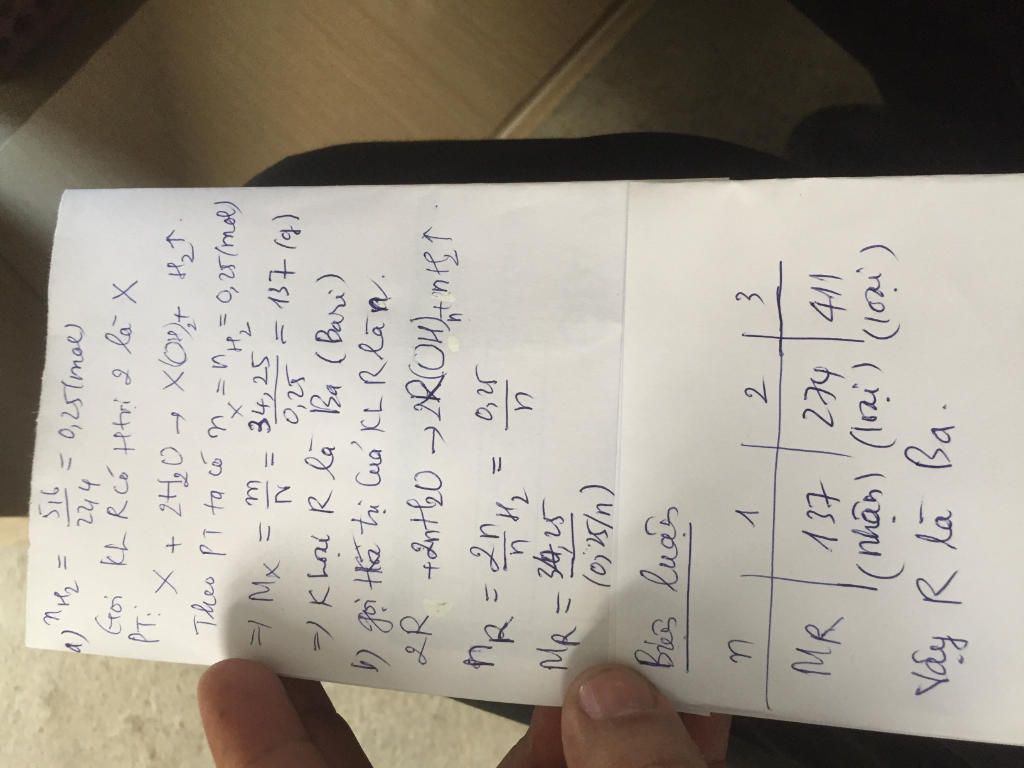 a) nH₂ = 5,6/22,4 = 0,25(mol)
Gọi KL R có Htrị 2 là X
PT: X + 2H₂O → X(OH)₂ + H₂↑.
Theo PT ta có nX = nH₂ = 0,25(mol)
=) MX = m/N = 34,25/0,25 = 137 (g)
=) Kloại R là Ba (Bari)
b) gọi Htrị của KL R là n.
2R + 2nH₂O → 2R(OH)n + nH₂↑.
nR = 2/n nH₂ = 0,25/n
MR = 34,25/(0,25/n)
Biện luận
n | 1 | 2 | 3
MR | 137 | 274 | 411
(nhận) (loại) (loại)
Vậy R là Ba.